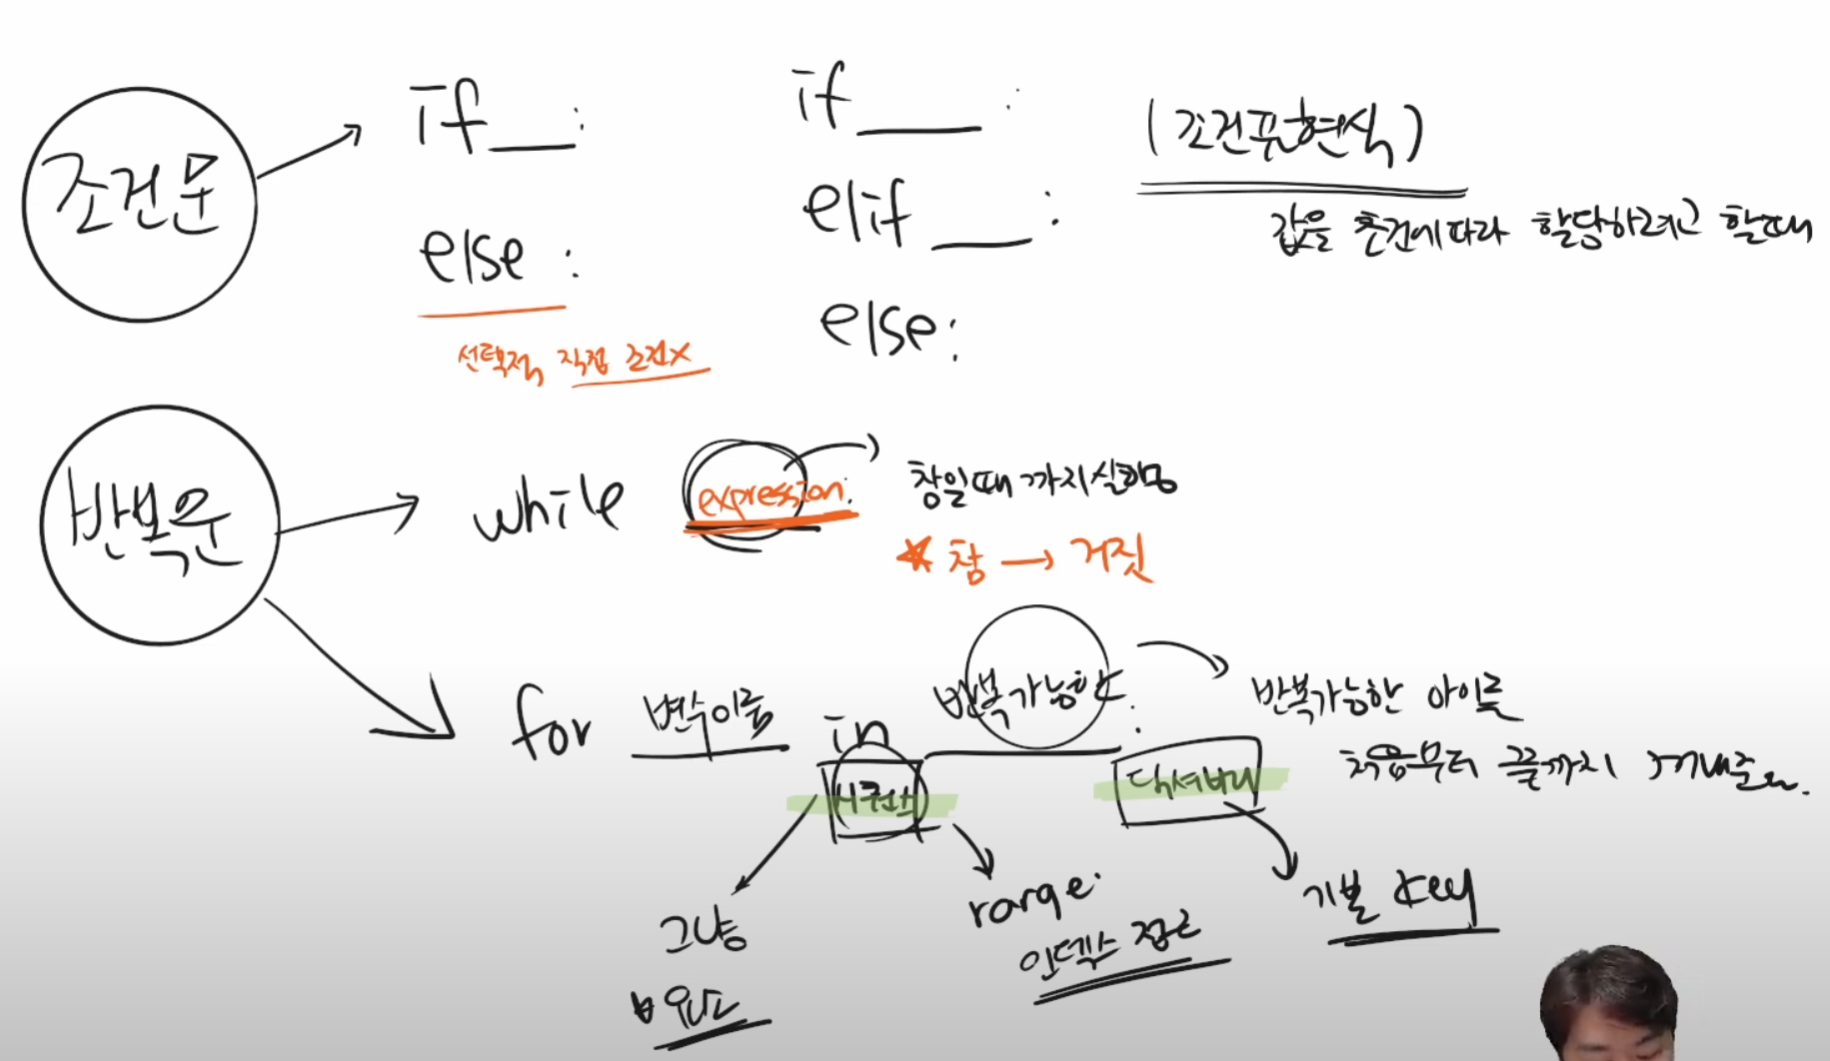 조건문
if __:
else :
선택적, 직접 조건X
if ____ :
elif ___ :
else:
(조건표현식)
값을 조건에 따라 할당하려고 할때
반복문
while expression:
참일때 까지 실행
★ 참 → 거짓
for 변수이름 in 반복가능한 :
반복가능한 아이를
처음부터 끝까지 꺼내준다.
시퀀스
딕셔너리
그냥
range:
인덱스 접근
기본 key